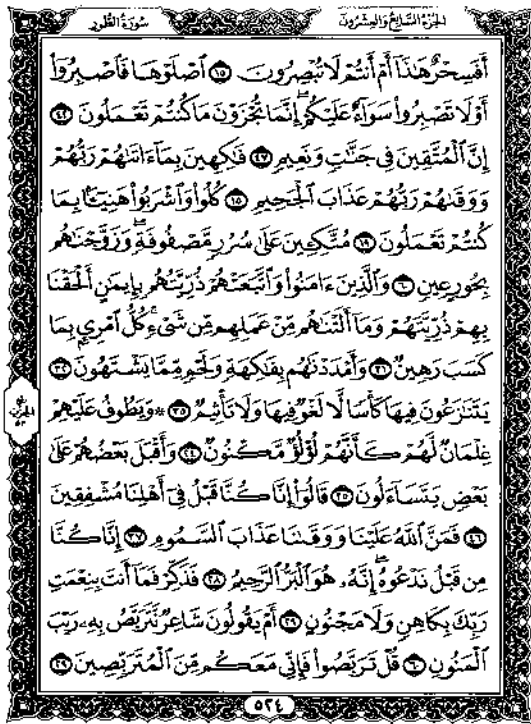 سُورَةُ الطُّورِ
الجُزْءُ السَّابِعُ وَالعِشْرُونَ
أَفَسِحْرٌ هَٰذَآ أَمْ أَنتُمْ لَا تُبْصِرُونَ ١٥ ٱصْلَوْهَا فَٱصْبِرُوٓا۟
أَوْ لَا تَصْبِرُوا۟ سَوَآءٌ عَلَيْكُمْ ۖ إِنَّمَا تُجْزَوْنَ مَا كُنتُمْ تَعْمَلُونَ
إِنَّ ٱلْمُتَّقِينَ فِى جَنَّٰتٍ وَنَعِيمٍ فَٰكِهِينَ بِمَآ ءَاتَىٰهُمْ رَبُّهُمْ
وَوَقَىٰهُمْ رَبُّهُمْ عَذَابَ ٱلْجَحِيمِ ١٥ كُلُوا۟ وَٱشْرَبُوا۟ هَنِيٓـًٔۢا بِمَا
كُنتُمْ تَعْمَلُونَ ١٩ مُتَّكِـِٔينَ عَلَىٰ سُرُرٍ مَّصْفُوفَةٍ ۖ وَزَوَّجْنَٰهُم
بِحُورٍ عِينٍ ٦٠ وَٱلَّذِينَ ءَامَنُوا۟ وَٱتَّبَعَتْهُمْ ذُرِّيَّتُهُم بِإِيمَٰنٍ أَلْحَقْنَا
بِهِمْ ذُرِّيَّتَهُمْ وَمَآ أَلَتْنَٰهُم مِّنْ عَمَلِهِم مِّن شَىْءٍ ۚ كُلُّ ٱمْرِئٍۭ بِمَا
كَسَبَ رَهِينٌ ٣١ وَأَمْدَدْنَٰهُم بِفَٰكِهَةٍ وَلَحْمٍ مِّمَّا يَشْتَهُونَ ٣٢
يَتَنَٰزَعُونَ فِيهَا كَأْسًا لَّا لَغْوٌ فِيهَا وَلَا تَأْثِيمٌ ٣٥ * وَيَطُوفُ عَلَيْهِمْ
غِلْمَانٌ لَّهُمْ كَأَنَّهُمْ لُؤْلُؤٌ مَّكْنُونٌ ٢٤ وَأَقْبَلَ بَعْضُهُمْ عَلَىٰ
بَعْضٍ يَتَسَآءَلُونَ ٢٥ قَالُوٓا۟ إِنَّا كُنَّا قَبْلُ فِىٓ أَهْلِنَا مُشْفِقِينَ
٤٦ فَمَنَّ ٱللَّهُ عَلَيْنَا وَوَقَىٰنَا عَذَابَ ٱلسَّمُومِ ٣٧ إِنَّا كُنَّا
مِن قَبْلُ نَدْعُوهُ ۖ إِنَّهُۥ هُوَ ٱلْبَرُّ ٱلرَّحِيمُ ٣٨ فَذَكِّرْ فَمَآ أَنتَ بِنِعْمَتِ
رَبِّكَ بِكَاهِنٍ وَلَا مَجْنُونٍ ٢٩ أَمْ يَقُولُونَ شَاعِرٌ نَّتَرَبَّصُ بِهِۦ رَيْبَ
ٱلْمَنُونِ ٦٠ قُلْ تَرَبَّصُوا۟ فَإِنِّى مَعَكُم مِّنَ ٱلْمُتَرَبِّصِينَ ٢٩
٥٢٤